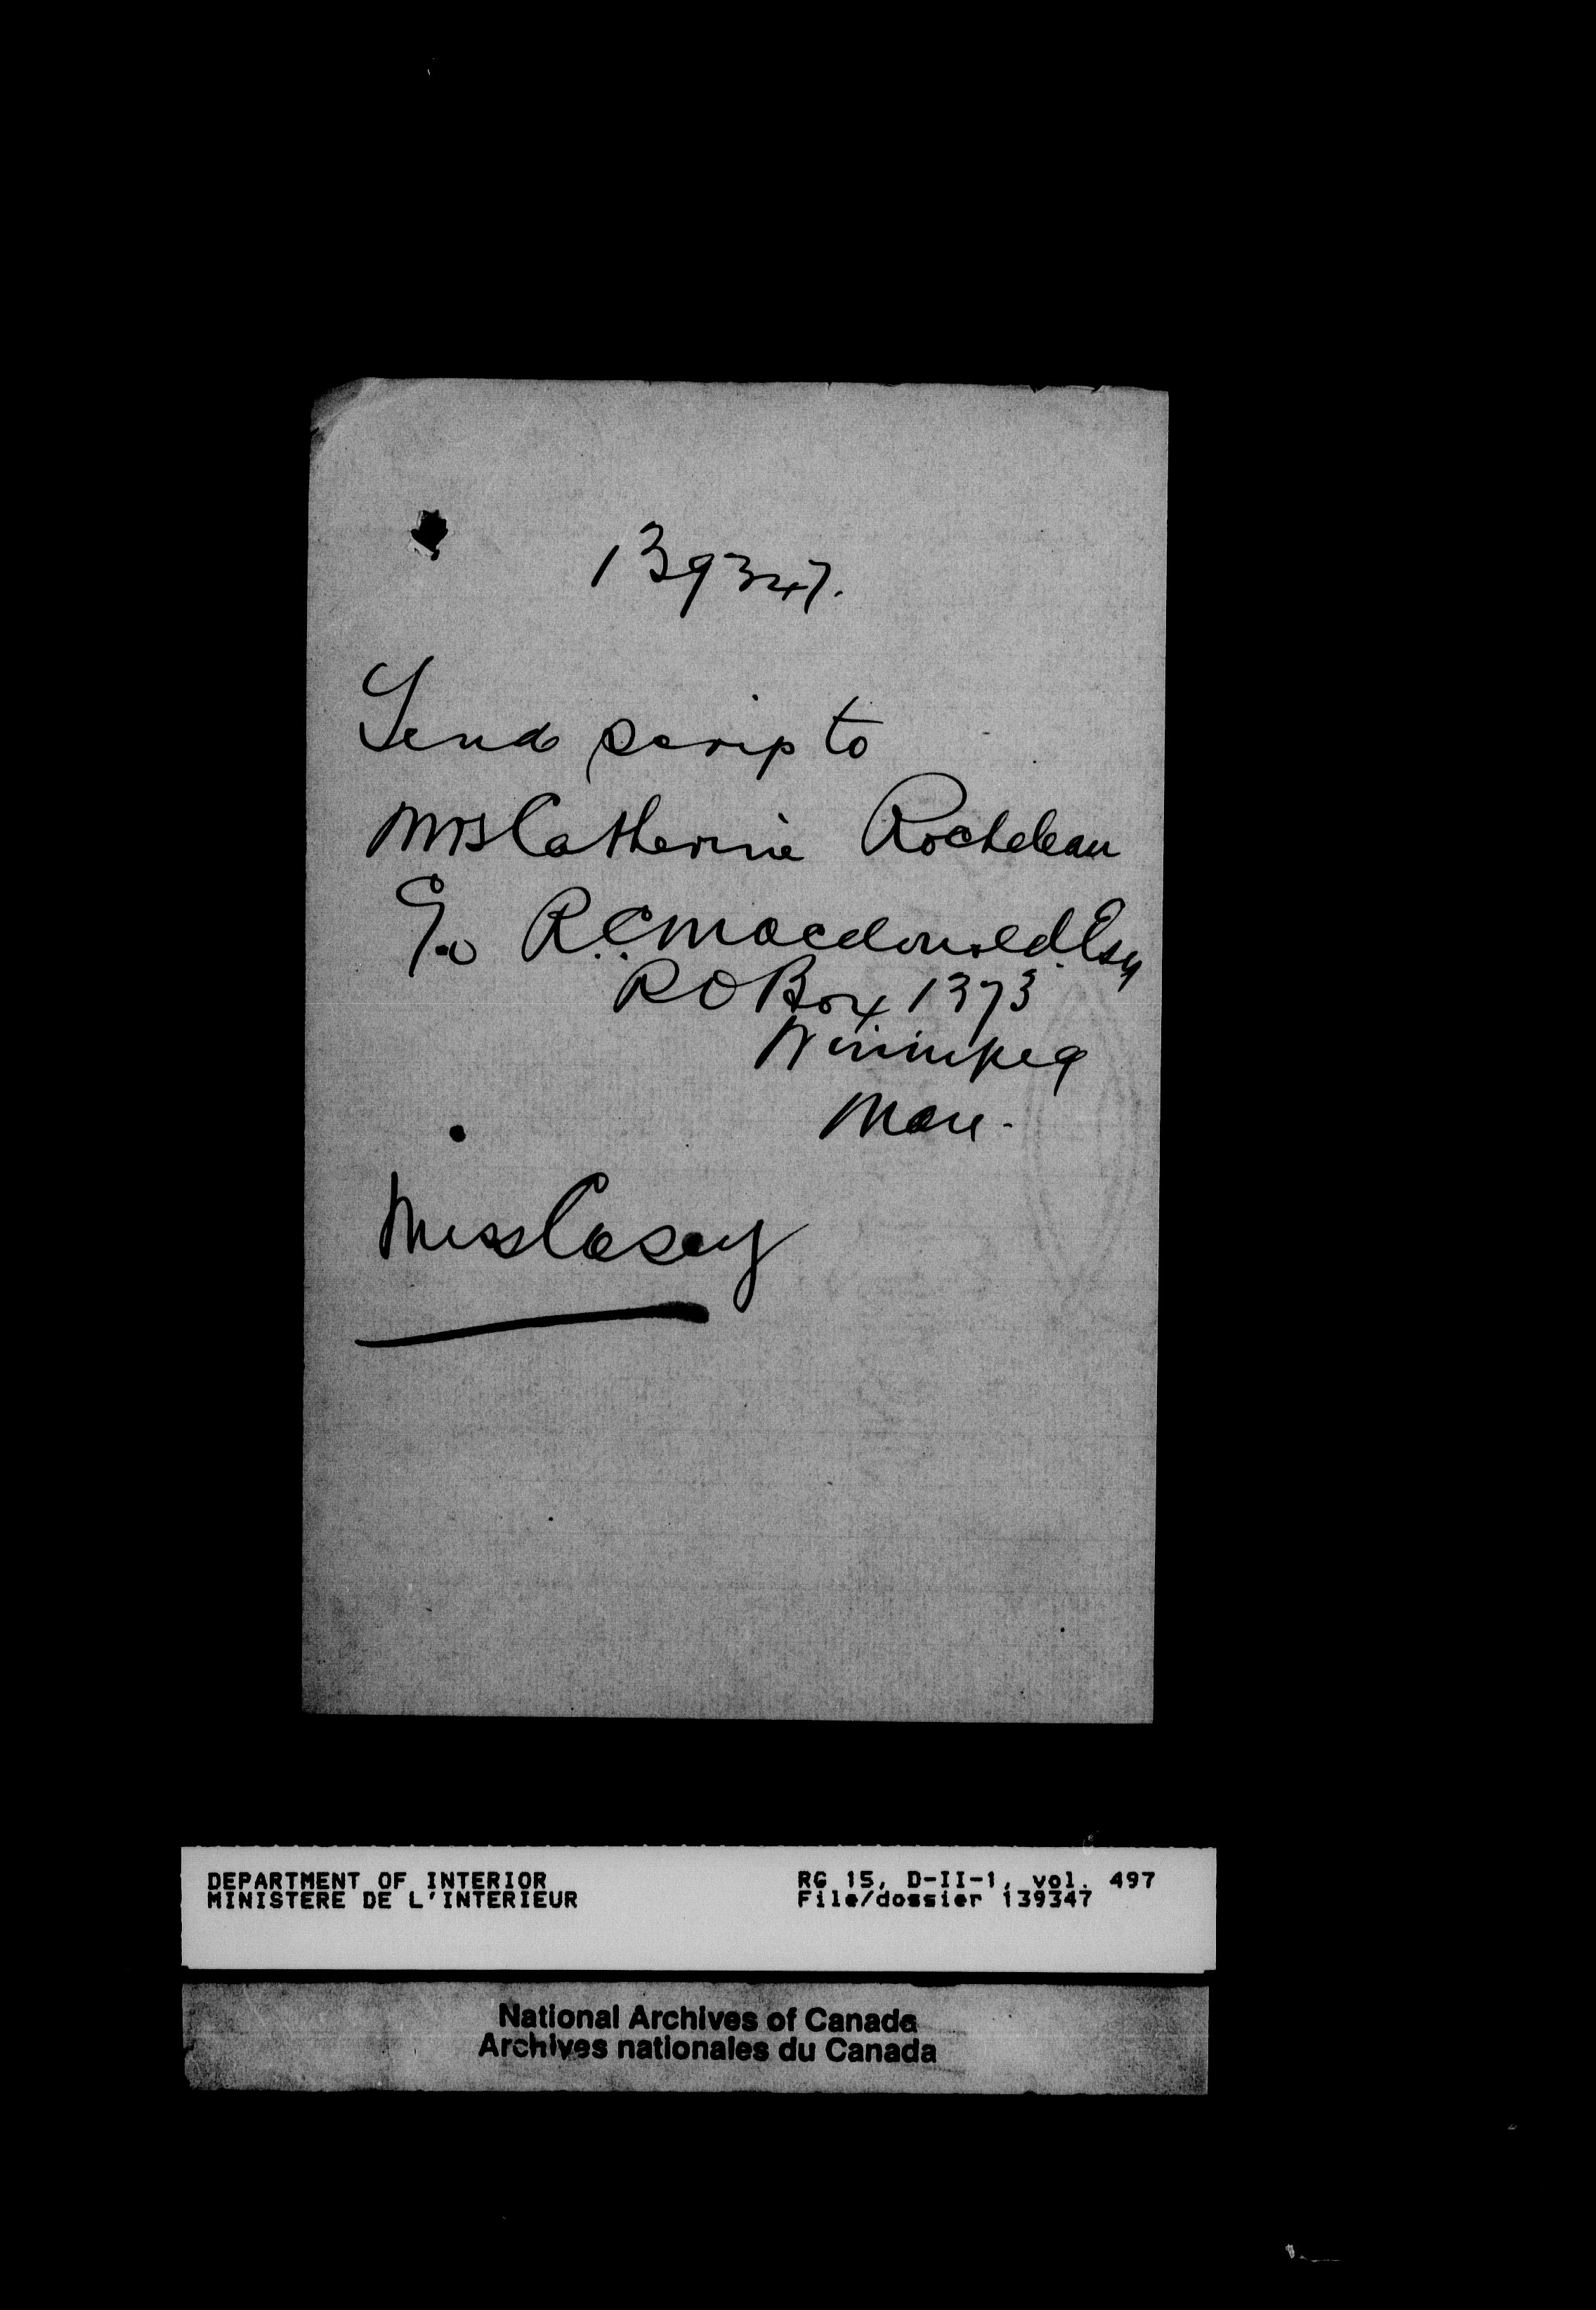 139347.
Send scrip to
Mrs Catherine Rocheleau
c/o R.C. Macdonald Esq
P O Box 1373
Winnipeg
Man.
Miss Casey
DEPARTMENT OF INTERIOR
MINISTERE DE L'INTERIEUR
RG 15, D-II-1, vol. 497
File/dossier 139347
National Archives of Canada
Archives nationales du Canada